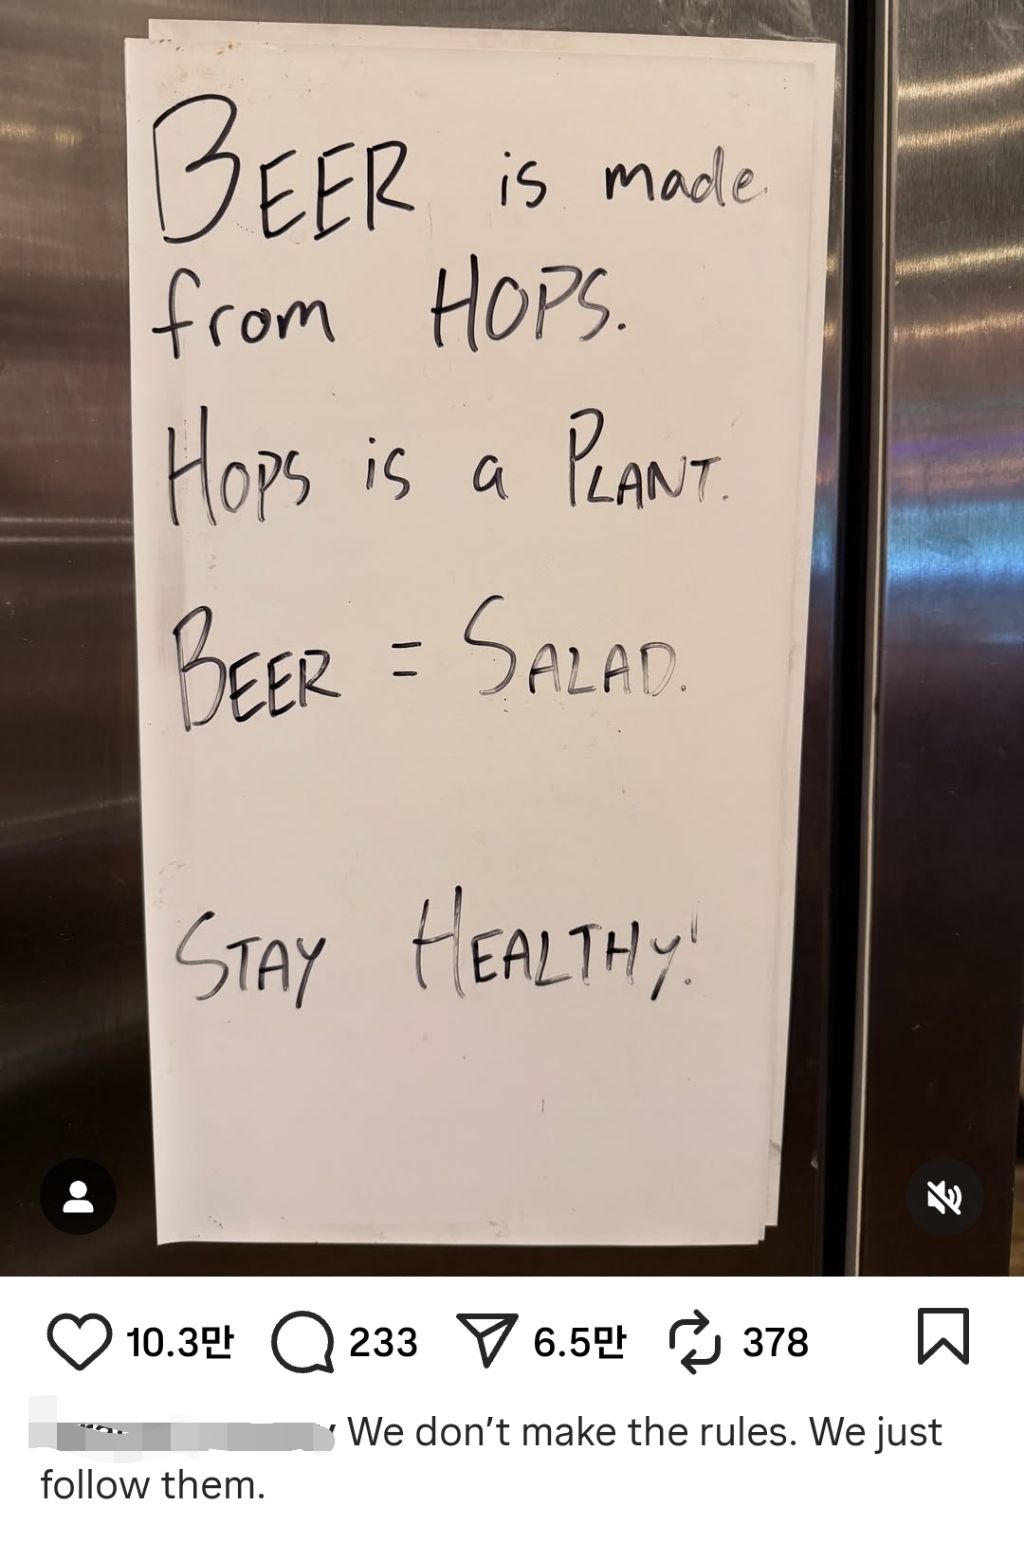 BEER is made
from HOPS.
HOPS is a PLANT.
BEER = SALAD.
STAY HEALTHY!
10.3만 233 6.5만 378
We don't make the rules. We just
follow them.